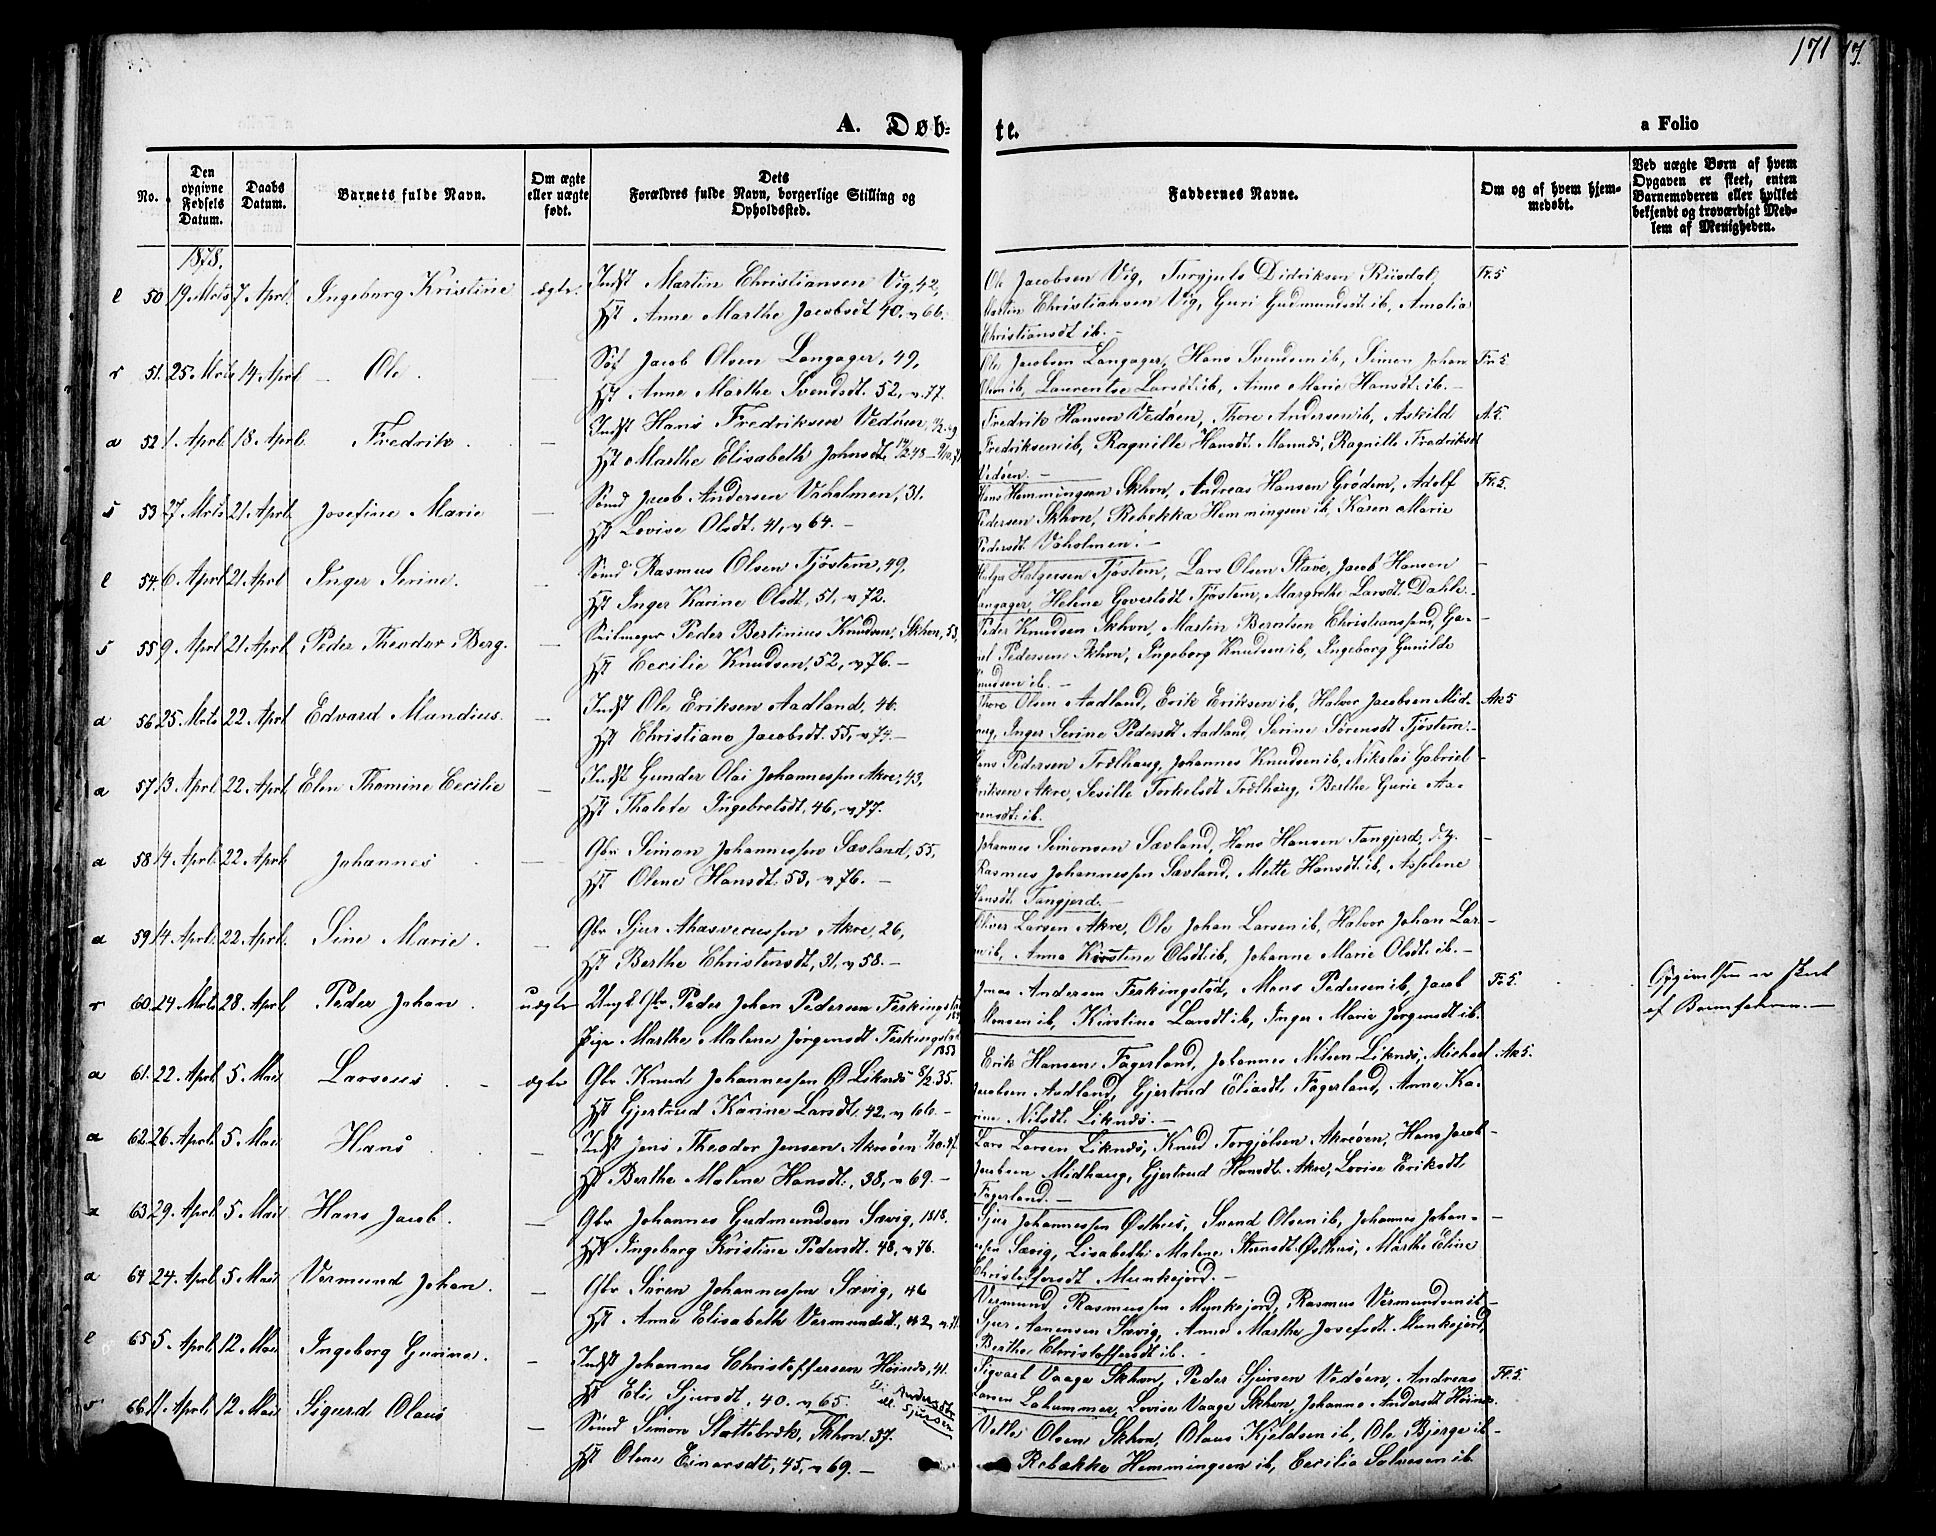 171
17.
A. Døb-
te.
a Folio
No.
Den opgivne Fødsels Datum.
Daabs Datum.
Barnets fulde Navn.
Om ægte eller uægte født.
Dets Forældres fulde Navn, borgerlige Stilling og Opholdssted.
Faddernes Navne.
Om og af hvem hjemmedøbt.
Ved uægte Børn af hvem Opgaven er skeet, enten Barnemoderen eller hvilket bekjendt og troværdigt Medlem af Menigheden.
1878.
e 50 19 Mrts 7 Aprl. Ingeborg Kristine ægte. Indst Martin Christiansen Vig, 42,
Hst Anne Marthe Jacobsdt 40, v 66.
Ole Jacobsen Vig, Torgjuls Didriksen Risdal, Fr. 5
Martin Christiansen Vig, Guri Gudmundsdt ib, Amalia
Christiansdt ib. –
r 51. 25 Mrts 14 Aprl – Ole. — Søf Jacob Olsen Langager, 49,
Hst Anne Marthe Svendsdt. 52, v 77.
Ole Jacobsen Langager, Hans Svendsen ib, Simon Johan Fr. 5
Olsen ib, Laurentse Larsdt ib, Anne Marie Hansdt. ib. –
a 52 1. Aprl 18 Aprl. Fredrik. — Indst Hans Fredriksen Vedøen,
Hst Marthe Elisabeth Johnsdt.
Fredrik Hansen Vedøen, Thore Andersen ib, Askild A. 5.
Fredriksen ib, Ragnille Hansdt. Mannes, Ragnille Fredriksdt
Vedøen. –
s 53 27 Mrts 21 Aprl. Josefine Marie — Sømd Jacob Andersen Vaholmen, 31.
Hst Lovise Olsdt. 41, v 64. –
Hans Hemmingsen Skhvn, Andreas Hansen Grødem, Adolf Fr. 5.
Pedersen Skhvn, Rebekka Hemmingsen ib, Karen Marie
Pedersdt. Vaholmen. –
e 54. 6 Aprl 21 Aprl Inger Serine. — Sømd Rasmus Olsen Tjøstem, 49,
Hst Inger Karine Olsdt, 51, v 72.
Helge Holgersen Tjøstem, Lars Olsen Stave, Jacob Hansen –
Langager, Helene Govertsdt Tjøstem, Margrethe Larsdt. Dahle. –
s 55 9 Aprl 21 Aprl Peder Theodor Berg. — Seilmager Peder Bertinius Knudsen, Skhvn, 53,
Hst Cecilie Knudsen, 52, v 76. –
Peder Knudsen Skhvn, Martin Berntsen Christianssand, Ga- –
Pedersen Skhvn, Ingeborg Knudsen ib, Ingeborg Gunilde
Knudsen ib. –
a 56 25 Mrts 22 Aprl Edvard Mandius. — Indst Ole Eriksen Aadland, 46.
Hst Christiane Jacobsdt. 55, v 74. –
Thore Olsen Aadland, Erik Eriksen ib, Halvor Jacobsen Mid- Ak 5
haug, Inger Serine Pedersdt Aadland, Serine Sørensdt Tjøstem. –
a 57 13 Aprl 22 Aprl Elen Thomine Cecilie — Indst Gunder Olai Johannessen Akre, 43,
Hst Thalete Ingebretsdt, 46, v 77.
Hans Pedersen Trælhaug, Johannes Knudsen ib, Nikolai Gabriel –
Eriksen Akre, Seville Torkelsdt Trælhaug, Berthe Gurie Aa-
ib.
a 58 14 Aprl. 22 Aprl. Johannes — Gbr Simon Johannessen Sævland, 55,
Hst Olene Hansdt. 53, v 76. –
Johannes Simonsen Sævland, Hans Hansen Tangjerd, d. y. –
Rasmus Johannessen Sævland, Mette Hansdt. ib, Asselene
Hansdt. Tangjerd. –
a 59 14 Aprl. 22 Aprl. Sine Marie. — Gbr Sjur Ahasverussen Akre, 26,
Hst Berthe Christensdt, 31, v 58. –
Oliver Larsen Akre, Ole Johan Larsen ib, Halvor Johan Lar- –
sen ib, Anna Kirstine Olsdt. ib, Johanne Marie Olsdt. ib. –
r 60 24 Mrts 28 Aprl Peder Johan. uægte Ungk. Gbr. Peder Johan Pedersen Ferkingstad
Pige Marthe Malene Jørgensdt Ferkingstad 1853
Jonas Andersen Ferkingstad, Mons Pedersen ib, Jacob Fr 5.
Monsen ib, Kirstine Larsdt ib, Inger Marie Jørgensdt ib.
Opgivelsen er skeet af Barnefaderen. –
a 61. 22 Aprl 5 Mai Larseus. ægte Gbr Knud Johannessen Ø. Liknæs 8/2 35.
Hst Gjertrud Karine Larsdt, 42, v 66. –
Erik Hansen Fagerland, Johannes Nilsen Liknæs, Michael Ak 5.
Jacobsen Aadland, Gjertrud Eliasdt. Fagerland, Anne Ka-
rine Nilsdt. Liknæs. –
a 62. 26 Aprl. 5 Mai Hans. — Indst Jens Theodor Jensen Akreøen
Hst Berthe Malene Hansdt., 38, v 69. –
Lars Larsen Liknæs, Knud Torgjølsen Akreøen, Hans Jacob –
Jacobsen Midhaug, Gjertrud Hansdt. Akre, Lovise Eriksdt.
Fagerland. –
a 63 29. Aprl 5 Mai Hans Jacob. — Gbr Johannes Gudmundsen Sævig, 1818.
Hst Ingeborg Kristine Pedersdt. 48, v 76.
Sjur Johannessen Østhus, Svend Olsen ib, Johannes Johan- –
sen Sævig, Lisabeth Malene Stensdt. Østhus, Marthe Eline
Christoffersdt Munkejord. –
a 64 24. Aprl 5 Mai Vermund Johan. — Gbr Søren Johannessen Sævig, 46
Hst Anne Elisabeth Vermundsdt, 42, v 71.
Vermund Rasmussen Munkejord, Rasmus Vermundsen ib –
Sjur Aanensen Sævig, Anne Marthe Josefsdt. Munkejord,
Berthe Christoffersdt ib. –
e 65 5 Aprl 12 Mai Ingeborg Gurine. — Indst Johannes Christoffersen Høinæs, 41.
Hst Eli Sjursdt, 40. v 65.
Eli Andersdt el. Sjursen
Sigvart Vaage Skhvn, Peder Sjursen Vedøen, Andreas Fr. 5.
Larsen Lahammer, Lovise Vaage Skhvn, Johanne Andersdt Høinæs
s 66 11 Aprl. 12 Mai Sigurd Olaus — Sømd Simon Slottebræk, Skhvn, 37.
Hst Olene Einarsdt, 45, v 69. –
Velle Olsen Skhvn, Olaus Kjeldsen ib, Ole Bjerge ib –
Rebækka Hemmingsen ib, Cecilia Salvesen ib.